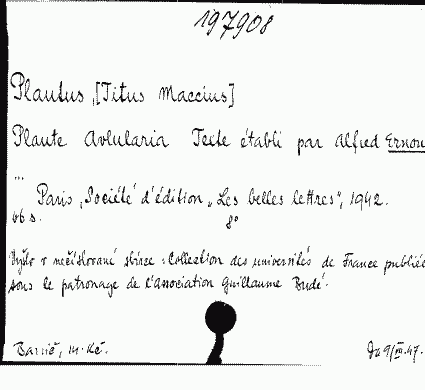 197908
Plautus, [Titus Maccius]
Plaute Avlularia Texte établi par Alfred Ernou
...
Paris, Société d'édition „Les belles lettres", 1942.
46 s. 8°
Vyšlo v nečíslované sbírce: Collection des universités de France publiée
sous le patronage de l'Association Guillaume Budé.
9/III.47.